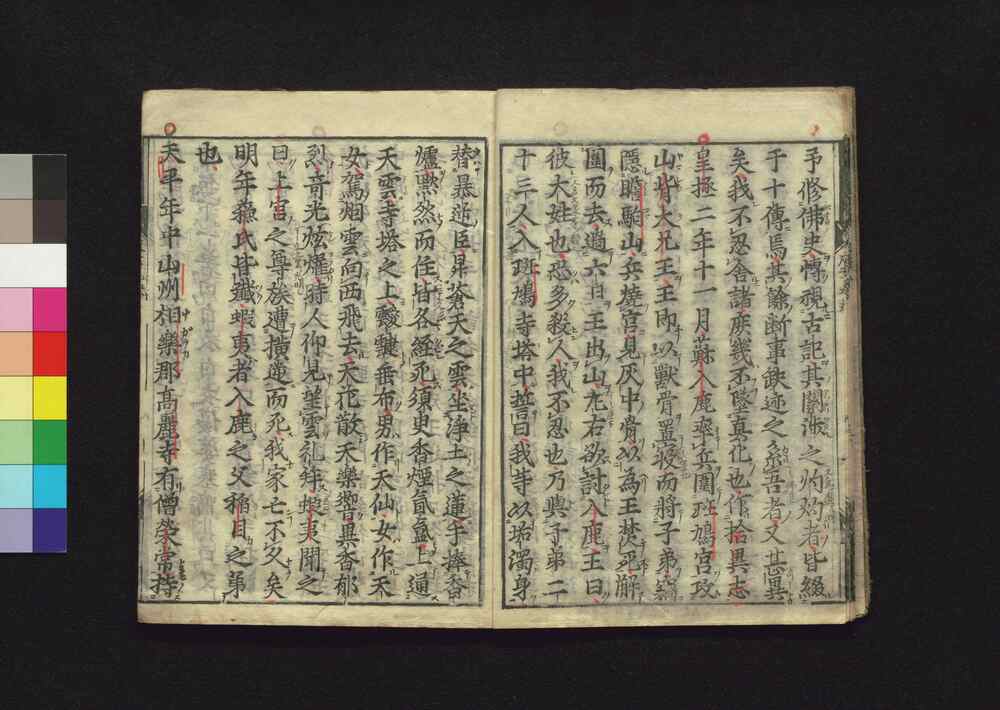 予修佛史博視古記其關渉之灼灼者皆綴
于十傳焉其餘断事缺迹之系吾者又甚異
矣我不忍舍諸庶幾不墜眞化也作拾異志
皇極二年十一月蘇入鹿率兵圍斑鳩宮攻
山背大兄王王即以獸骨置寢而將子弟等
隱膽駒山兵燒宮見灰中骨以為王焚死解
圍而去過六日王出山左右欲討入鹿王曰
彼大姓也恐多殺人我不忍也乃與子弟二
十三人入斑鳩寺塔中誓曰我等以垢濁身
替暴逆臣昇蒼天之雲坐浄土之蓮手捧香
爐默然而住皆各經死須臾香煙氤氳上通
天雲寺塔之上靉靆垂布男作天仙女作天
女駕烟雲向西飛去天花散天樂響異香郁
烈奇光炫燿時人仰見望雲礼拜蝦夷聞之
曰上宮之尊族遭横逆而死我家亡不久矣
明年蘇氏皆殲蝦夷者入鹿之父稲目之第
也
天平年中山州相樂郡高麗寺有僧榮常持